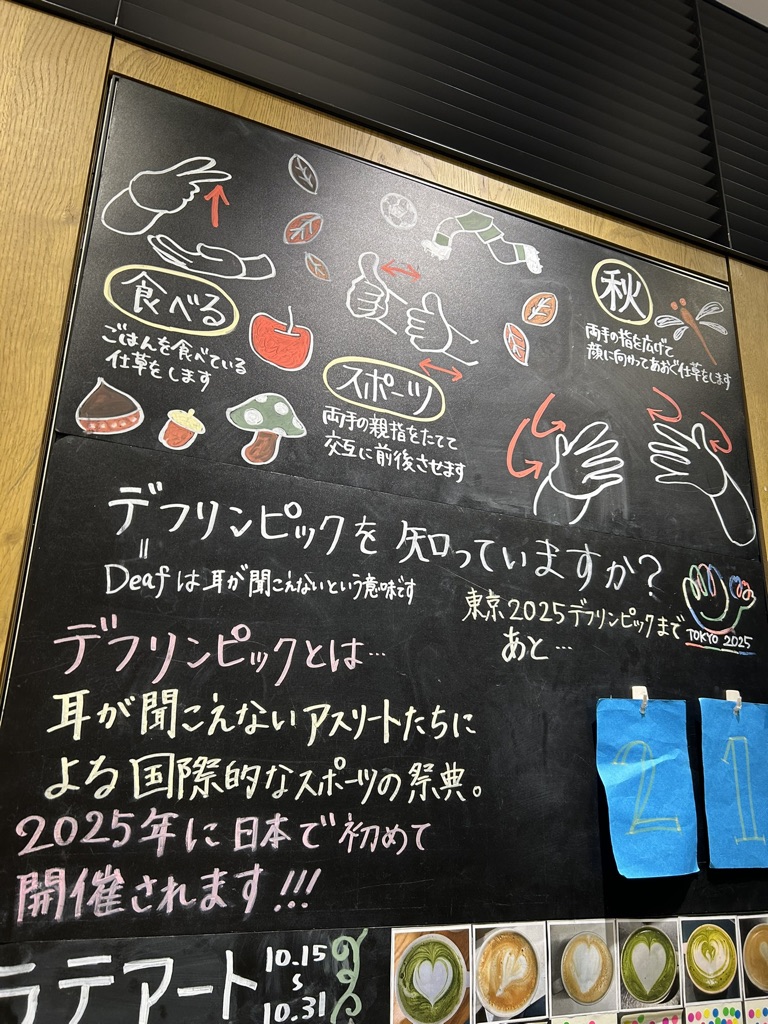 食べる
ごはんを食べている
仕草をします
スポーツ
両手の親指をたてて
交互に前後させます
秋
両手の指を広げて
顔に向かってあおぐ仕草をします
デフリンピックを知っていますか?
=
Deafは耳が聞こえないという意味です
東京2025デフリンピックまで
あと…
TOKYO 2025
21
デフリンピックとは…
耳が聞こえないアスリートたちに
よる国際的なスポーツの祭典。
2025年に日本で初めて
開催されます!!!
ラテアート
10.15
S
10.31